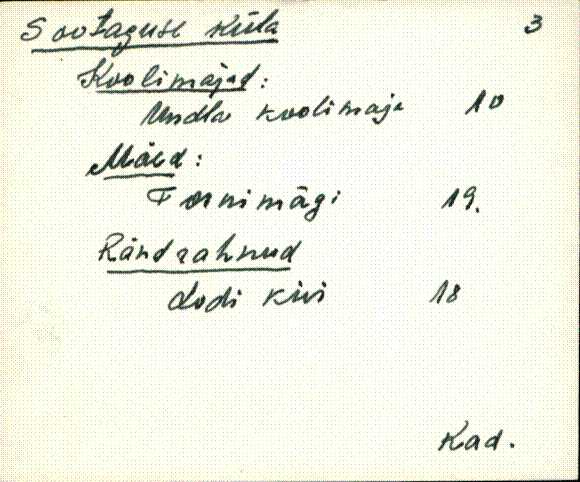 Sootaguse küla 3
Koolimajad:
Undla koolimaja 10
Mäed:
Tornimägi 19.
Rändrahnud
Lodi kivi 18
Kad.